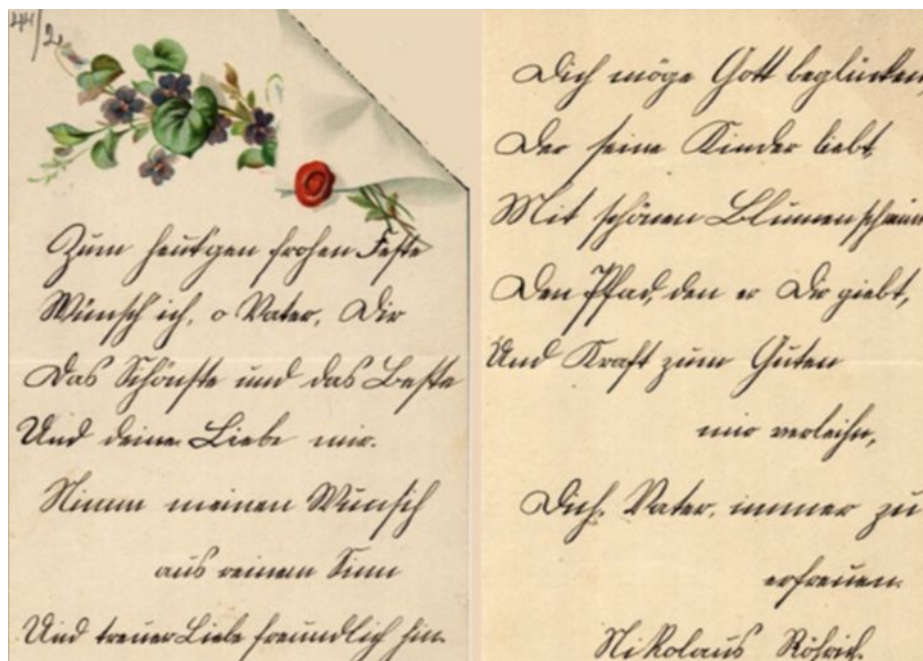 44/2.
Zum heut'gen frohen Feste
Wünsch ich, o Vater, Dir
Das Schönste und das Beste
Und deine Liebe mir.
Nimm meinen Wunsch
aus reinem Sinn
Und treuer Liebe freundlich hin.
Dich möge Gott beglücken,
Der seine Kinder liebt,
Mit schönen Blumen schmü
Den Pfad, den er Dir giebt,
Und Kraft zum Guten
mir verleihn,
Dich, Vater, immer zu
erfreuen.
Nikolaus Röhrich.